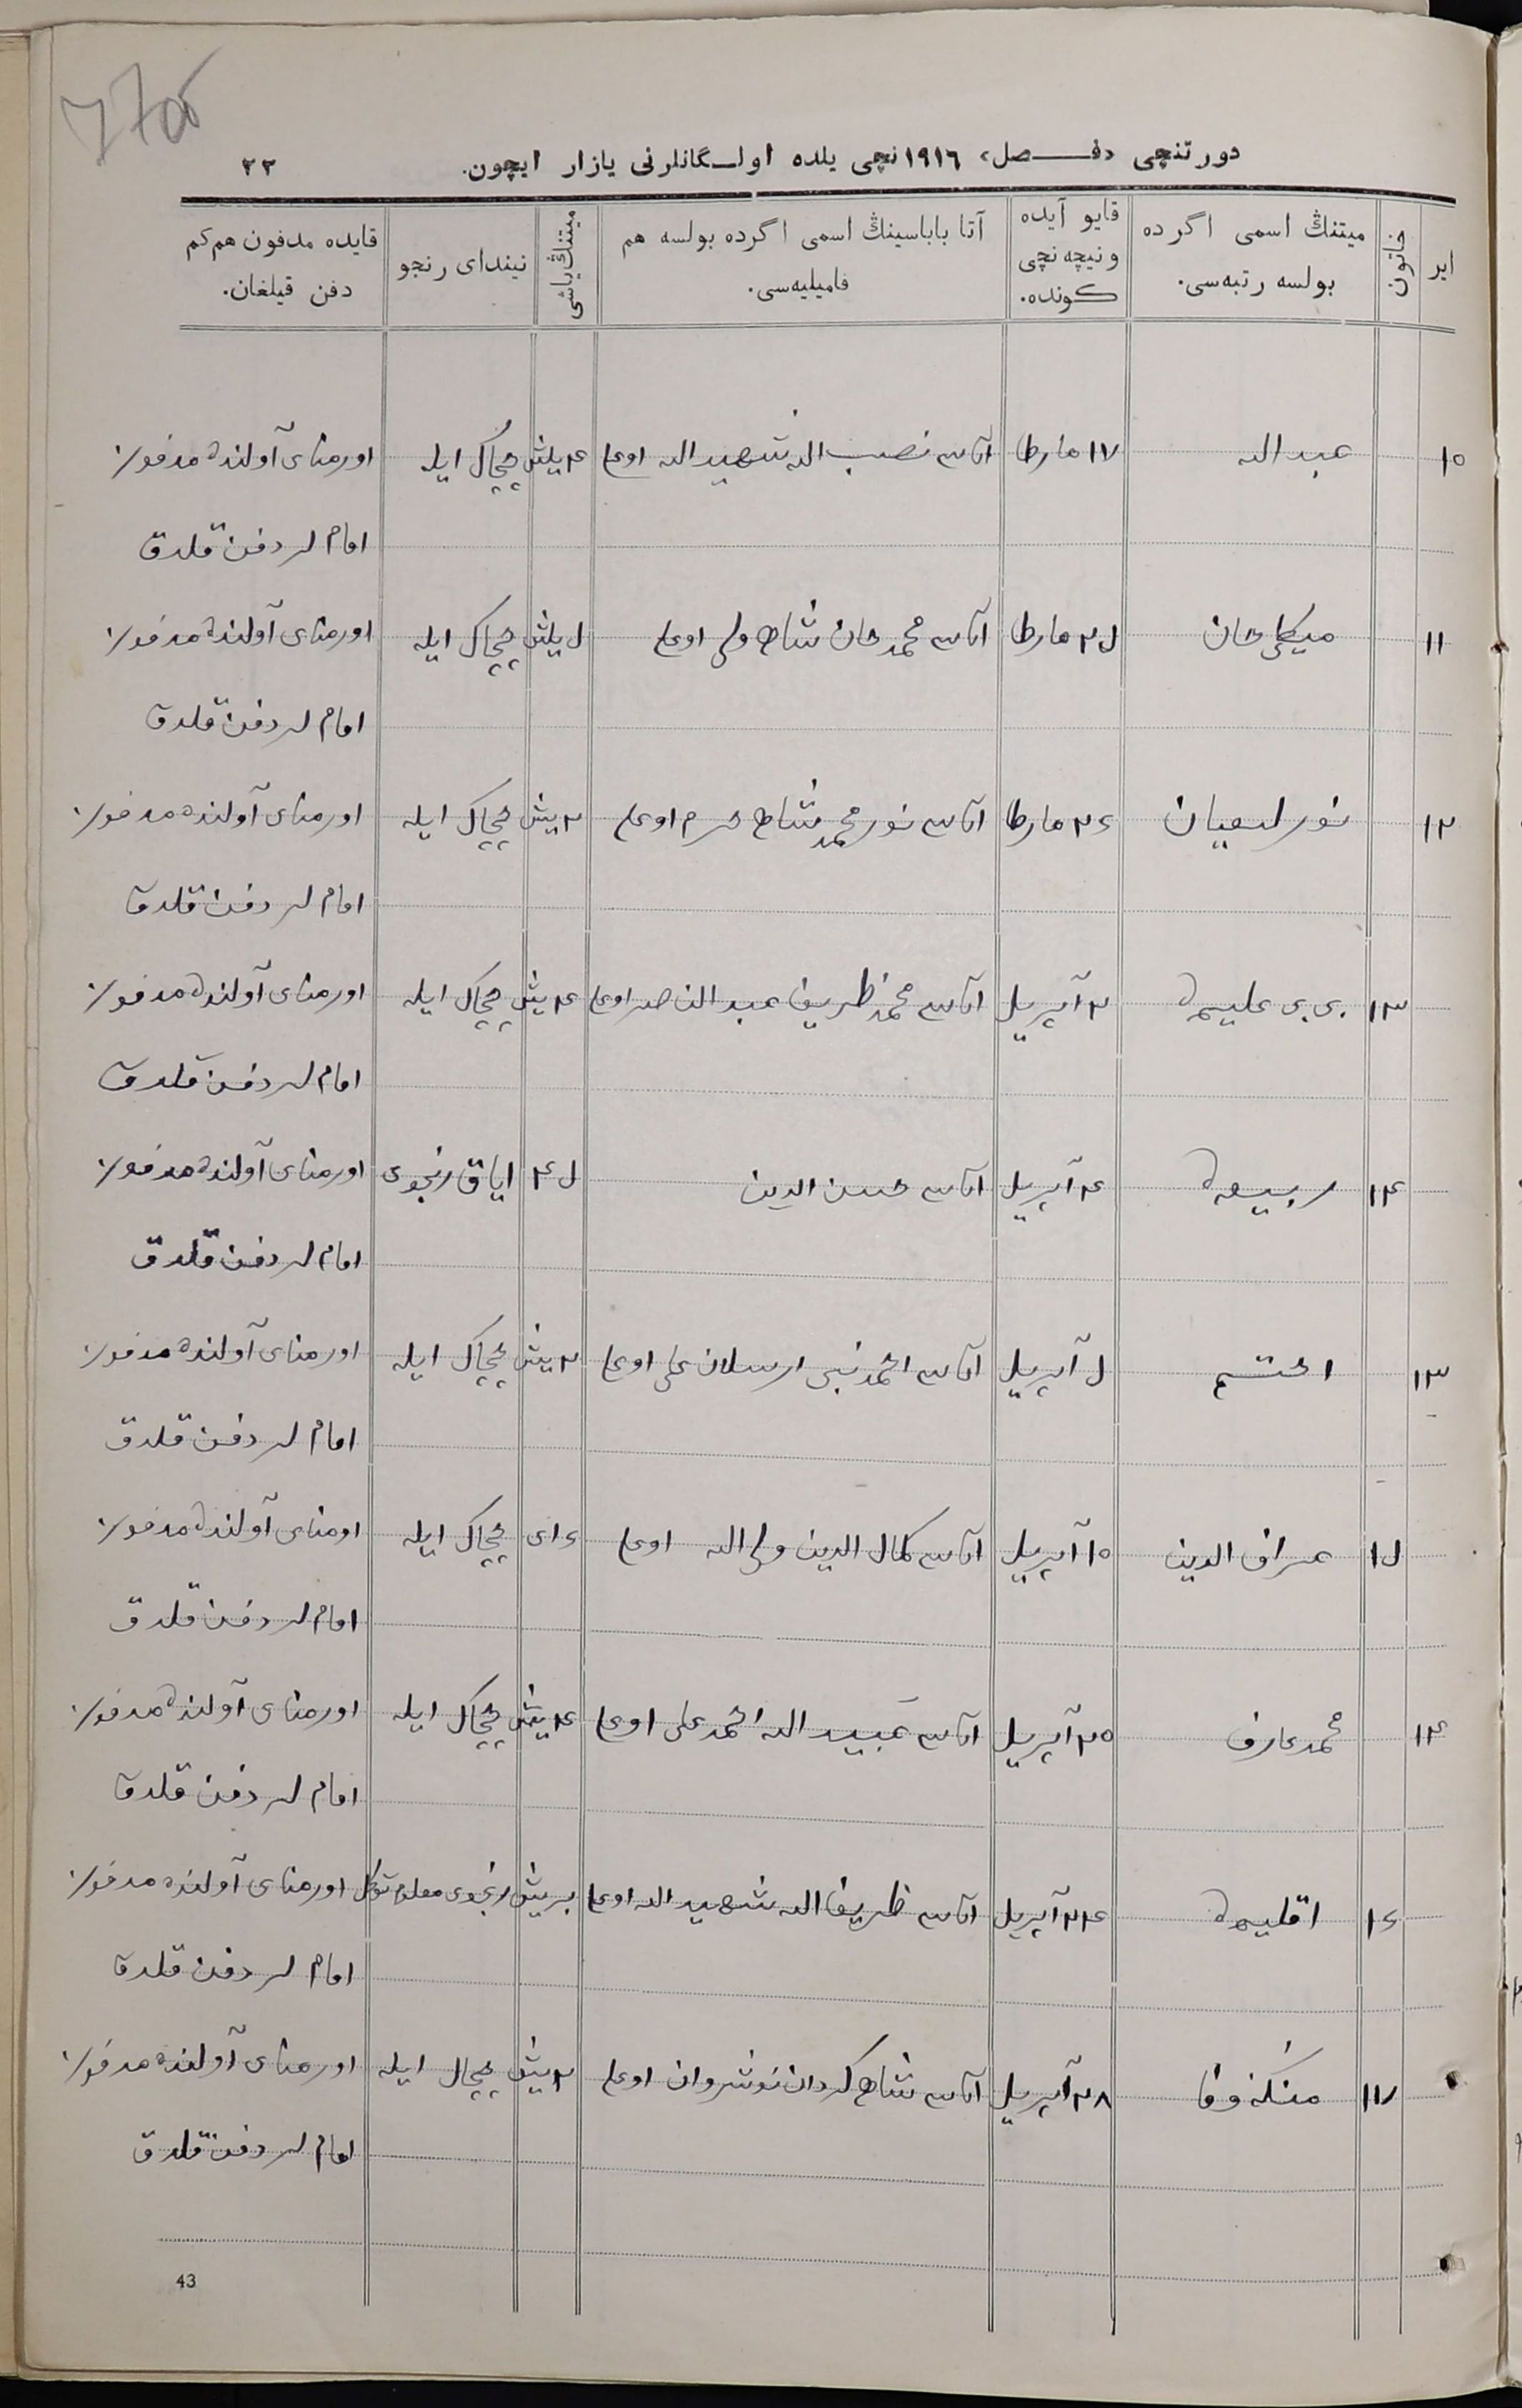 دورتنچی «فـصل» ١٩١٦نچی یلده اولـگانلرنی یازار ایچون. ٢٢
ایر
خاتون
میتنڭ اسمی اگرده بولسه رتبه‌سی.
قایو آیده ونیچه نچی کونده.
آتا باباسینڭ اسمی اگرده بولسه هم فامیلیه‌سی.
میتنڭ یاشی
نیندای رنجو
قایده مدفون هم کم دفن قیلغان.
١٠ عبدالله ١٧ مارطا آتاسی شهیدالله اوغلی ۴ یش چچاک ایله اورمنای آولنده مدفون
امام لر دفن قلدق
١١ مارطا آتاسی محمدجان شاه ولی اوغلی یش چچاک ایله اورمنای آولنده مدفون
امام لر دفن قلدق
١٢ مارطا آتاسی نورمحمد شاه اوغلی ٢ یش چچاک ایله اورمنای آولنده مدفون
امام لر دفن قلدق
١٣ بی بی علیمه ٢ آپریل آتاسی محمدظریف عبدالناصر اوغلی ۴ یش چچاک ایله اورمنای آولنده مدفون
امام لر دفن قلدق
١۴ ربیعه ۴ آپریل آتاسی حسن الدین ایاق رنجوی اورمنای آولنده مدفون
امام لر دفن قلدق
١٣ احتشم آپریل آتاسی احمدنبی ارسلان علی اوغلی ٢ یش چچاک ایله اورمنای آولنده مدفون
امام لر دفن قلدق
الدین ١٠ آپریل آتاسی کمال الدین ولی الله اوغلی ای چچاک ایله اومنای آولنده مدفون
امام لر دفن قلدق
١۴ محمدعارف ٢٠ آپریل آتاسی عبیدالله احمدعلی اوغلی ۴ یش چچاک ایله اورمنای آولنده مدفون
امام لر دفن قلدق
اقلیمه ٢۴ آپریل آتاسی ظریف الله شهیدالله اوغلی بر یش رنجوی معلوم توگل اورمنای آولنده مدفون
امام لر دفن قلدق
١٧ ٢٨ آپریل آتاسی شاه گردان نوشروان اوغلی ٢ یش چچاک ایله اورمنای آولنده مدفون
امام لر دفن قلدق
43